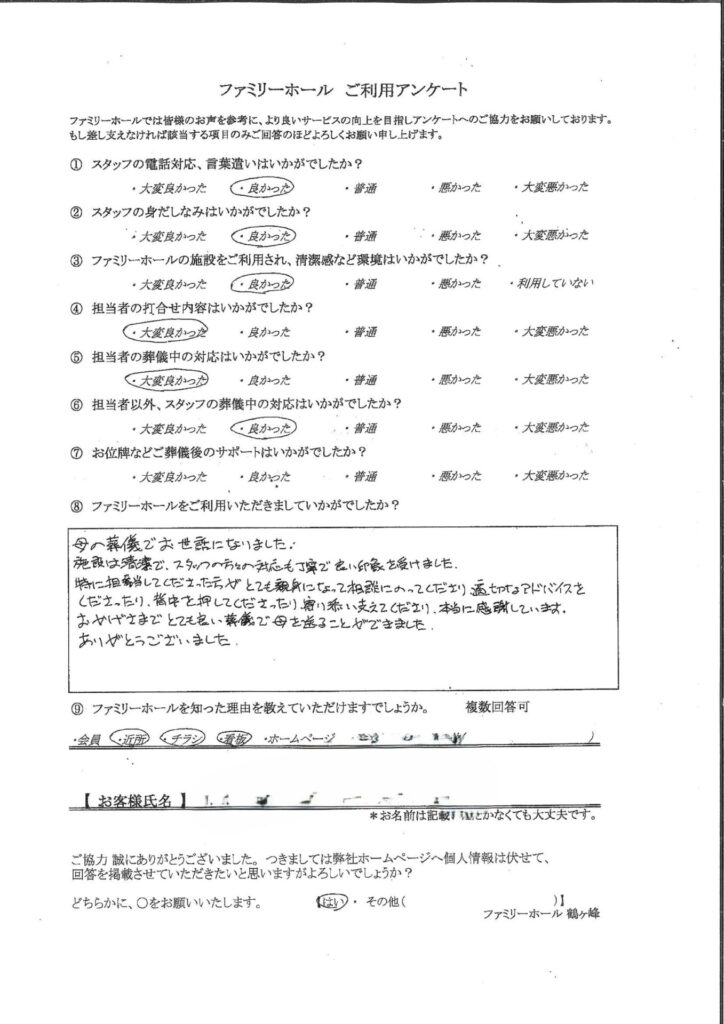 ファミリーホール ご利用アンケート
ファミリーホールでは皆様のお声を参考に、より良いサービスの向上を目指しアンケートへのご協力をお願いしております。
もし差し支えなければ該当する項目のみご回答のほどよろしくお願い申し上げます。
① スタッフの電話対応、言葉遣いはいかがでしたか？
・大変良かった ・良かった ・普通 ・悪かった ・大変悪かった
② スタッフの身だしなみはいかがでしたか？
・大変良かった ・良かった ・普通 ・悪かった ・大変悪かった
③ ファミリーホールの施設をご利用され、清潔感など環境はいかがでしたか？
・大変良かった ・良かった ・普通 ・悪かった ・利用していない
④ 担当者の打合せ内容はいかがでしたか？
・大変良かった ・良かった ・普通 ・悪かった ・大変悪かった
⑤ 担当者の葬儀中の対応はいかがでしたか？
・大変良かった ・良かった ・普通 ・悪かった ・大変悪かった
⑥ 担当者以外、スタッフの葬儀中の対応はいかがでしたか？
・大変良かった ・良かった ・普通 ・悪かった ・大変悪かった
⑦ お位牌などご葬儀後のサポートはいかがでしたか？
・大変良かった ・良かった ・普通 ・悪かった ・大変悪かった
⑧ ファミリーホールをご利用いただきましていかがでしたか？
母の葬儀でお世話になりました。
施設は清潔で、スタッフの方々の対応も丁寧で良い印象を受けました。
特に担当してくださった方がとても親身になって相談にのってくださり、適切なアドバイスを
くださったり、背中を押してくださったり、寄り添い支えてくださり、本当に感謝しています。
おかげさまでとても良い葬儀で母を送ることができました。
ありがとうございました。
⑨ ファミリーホールを知った理由を教えていただけますでしょうか。 複数回答可
・会員 ・近所 ・チラシ ・看板 ・ホームページ )
【 お客様氏名 】
＊お名前は記載 とかなくても大丈夫です。
ご協力 誠にありがとうございました。つきましては弊社ホームページへ個人情報は伏せて、
回答を掲載させていただきたいと思いますがよろしいでしょうか？
どちらかに、〇をお願いいたします。 【はい ・ その他( )】
ファミリーホール 鶴ヶ峰